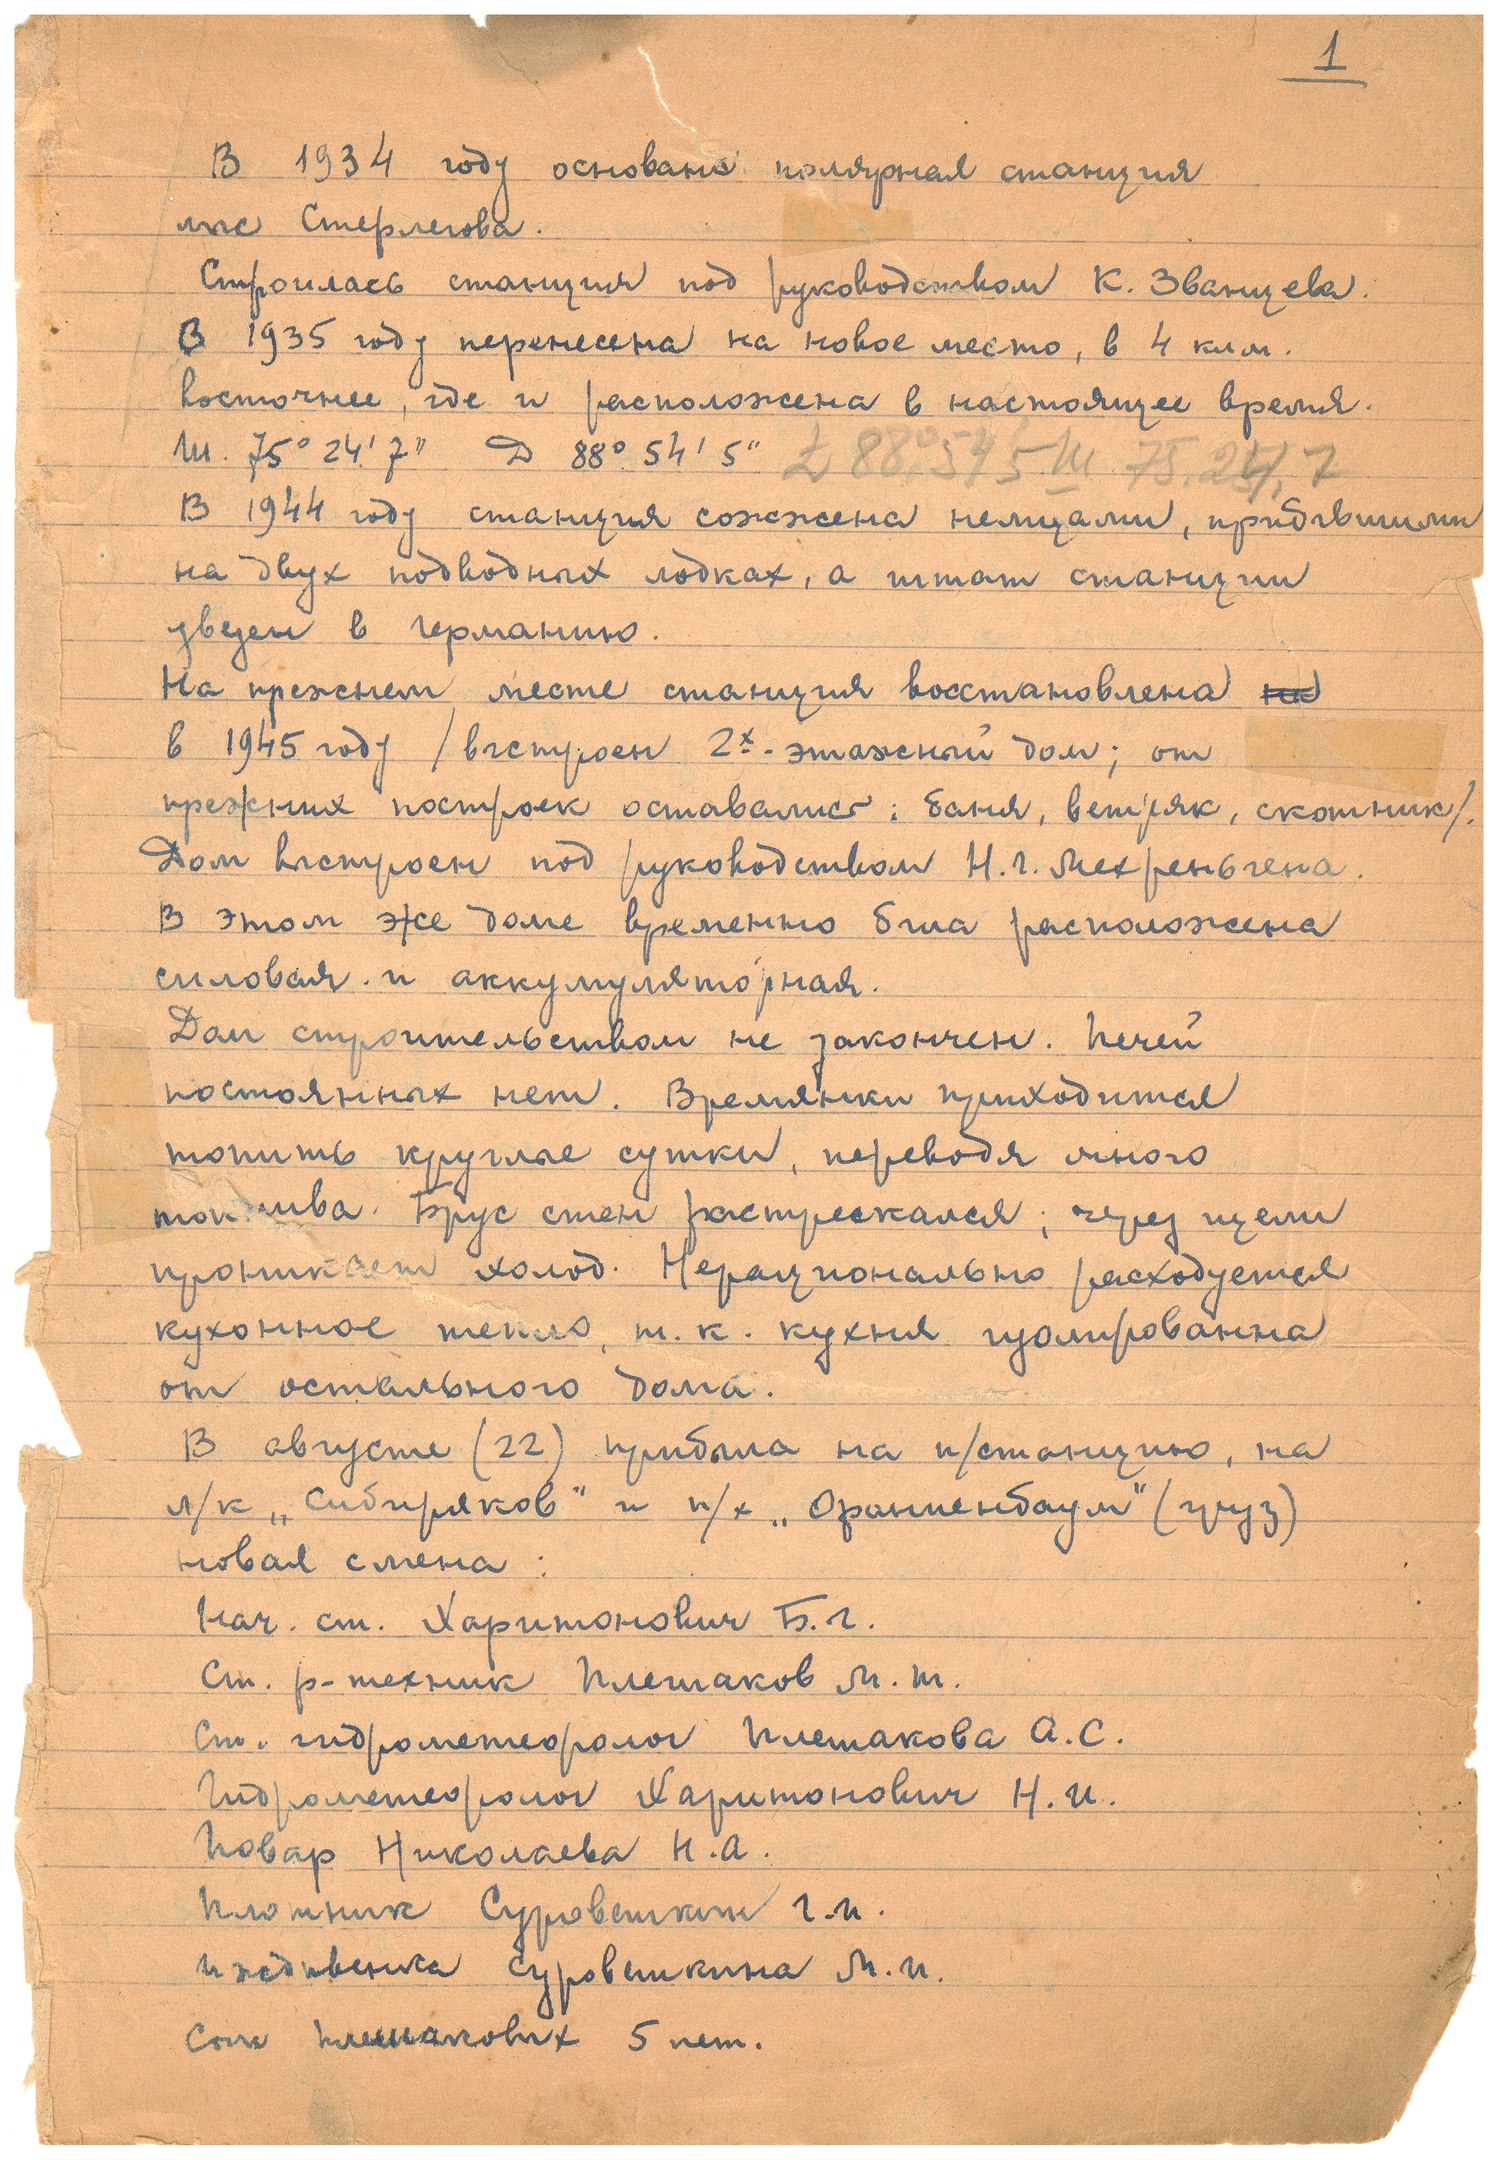 1
В 1934 году основана полярная станция
мыс Стерлегова.
Строилась станция под руководством К. Званцева.
В 1935 году перенесена на новое место, в 4 клм.
восточнее, где и расположена в настоящее время.
Ш. 75° 24' 7" Д 88° 54' 5" Д 88°54 5 Ш 75.24,7
В 1944 году станция сожжена немцами, прибывшими
на двух подводных лодках, а штат станции
увезен в Германию.
На прежнем месте станция восстановлена на
в 1945 году /выстроен 2х-этажный дом; от
прежних построек оставались: баня, ветряк, скотник/.
Дом выстроен под руководством Н.Г. Мехреньгена.
В этом же доме временно была расположена
силовая и аккумуляторная.
Дом строительством не закончен. Печей
постоянных нет. Времянки приходится
топить круглые сутки, переводя много
топлива. Брус стен растрескался; через щели
проникает холод. Нерационально расходуется
кухонное тепло, т.к. кухня изолированна
от остального дома.
В августе (22) прибыла на п/станцию, на
л/к „Сибиряков" и п/х „Ораниенбаум" (груз)
новая смена:
Нач. ст. Харитонович Б.Г.
Ст. р-техник Плешаков М.т.
Ст. гидрометеоролог Плешакова А.С.
Гидрометеоролог Харитонович Н.И.
Повар Николаева Н.А.
Плотник Суровешкин Г.И.
Иждивенка Суровешкина М.И.
Сын Плешаковых 5 лет.